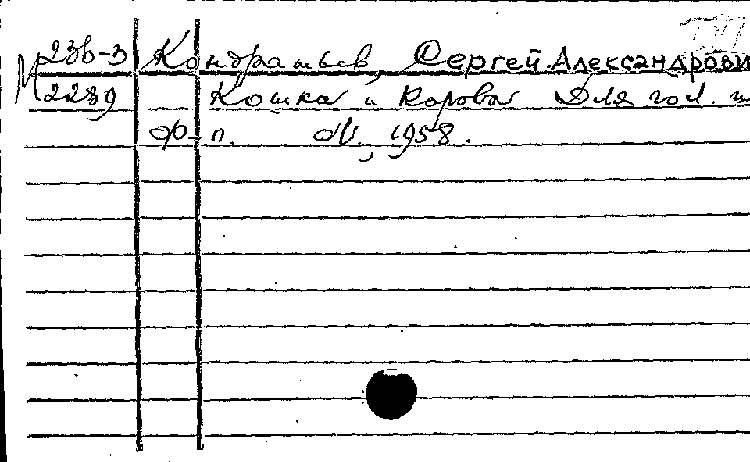 23б-3 Кондратьев, Сергей Александрови
М 2289 Кошка и корова Для гол. и
ф-п. М., 1958.